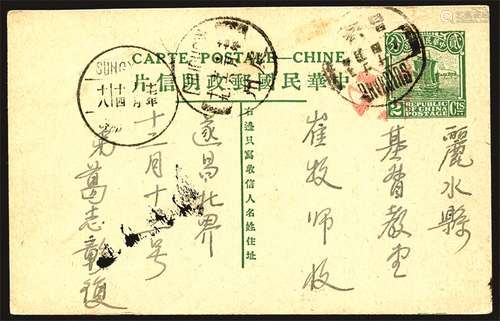 CARTE POSTALE CHINE
中華民國郵政明信片
貳
2 Cts
REPUBLIC
OF CHINA
POSTAGE
SUNGYANG
SUNG
十年
十四月
十八
右邊只寫收信人名姓住址
麗水縣
基督教堂
崔牧師收
遂昌北界
十二月十一号
葛志彰復